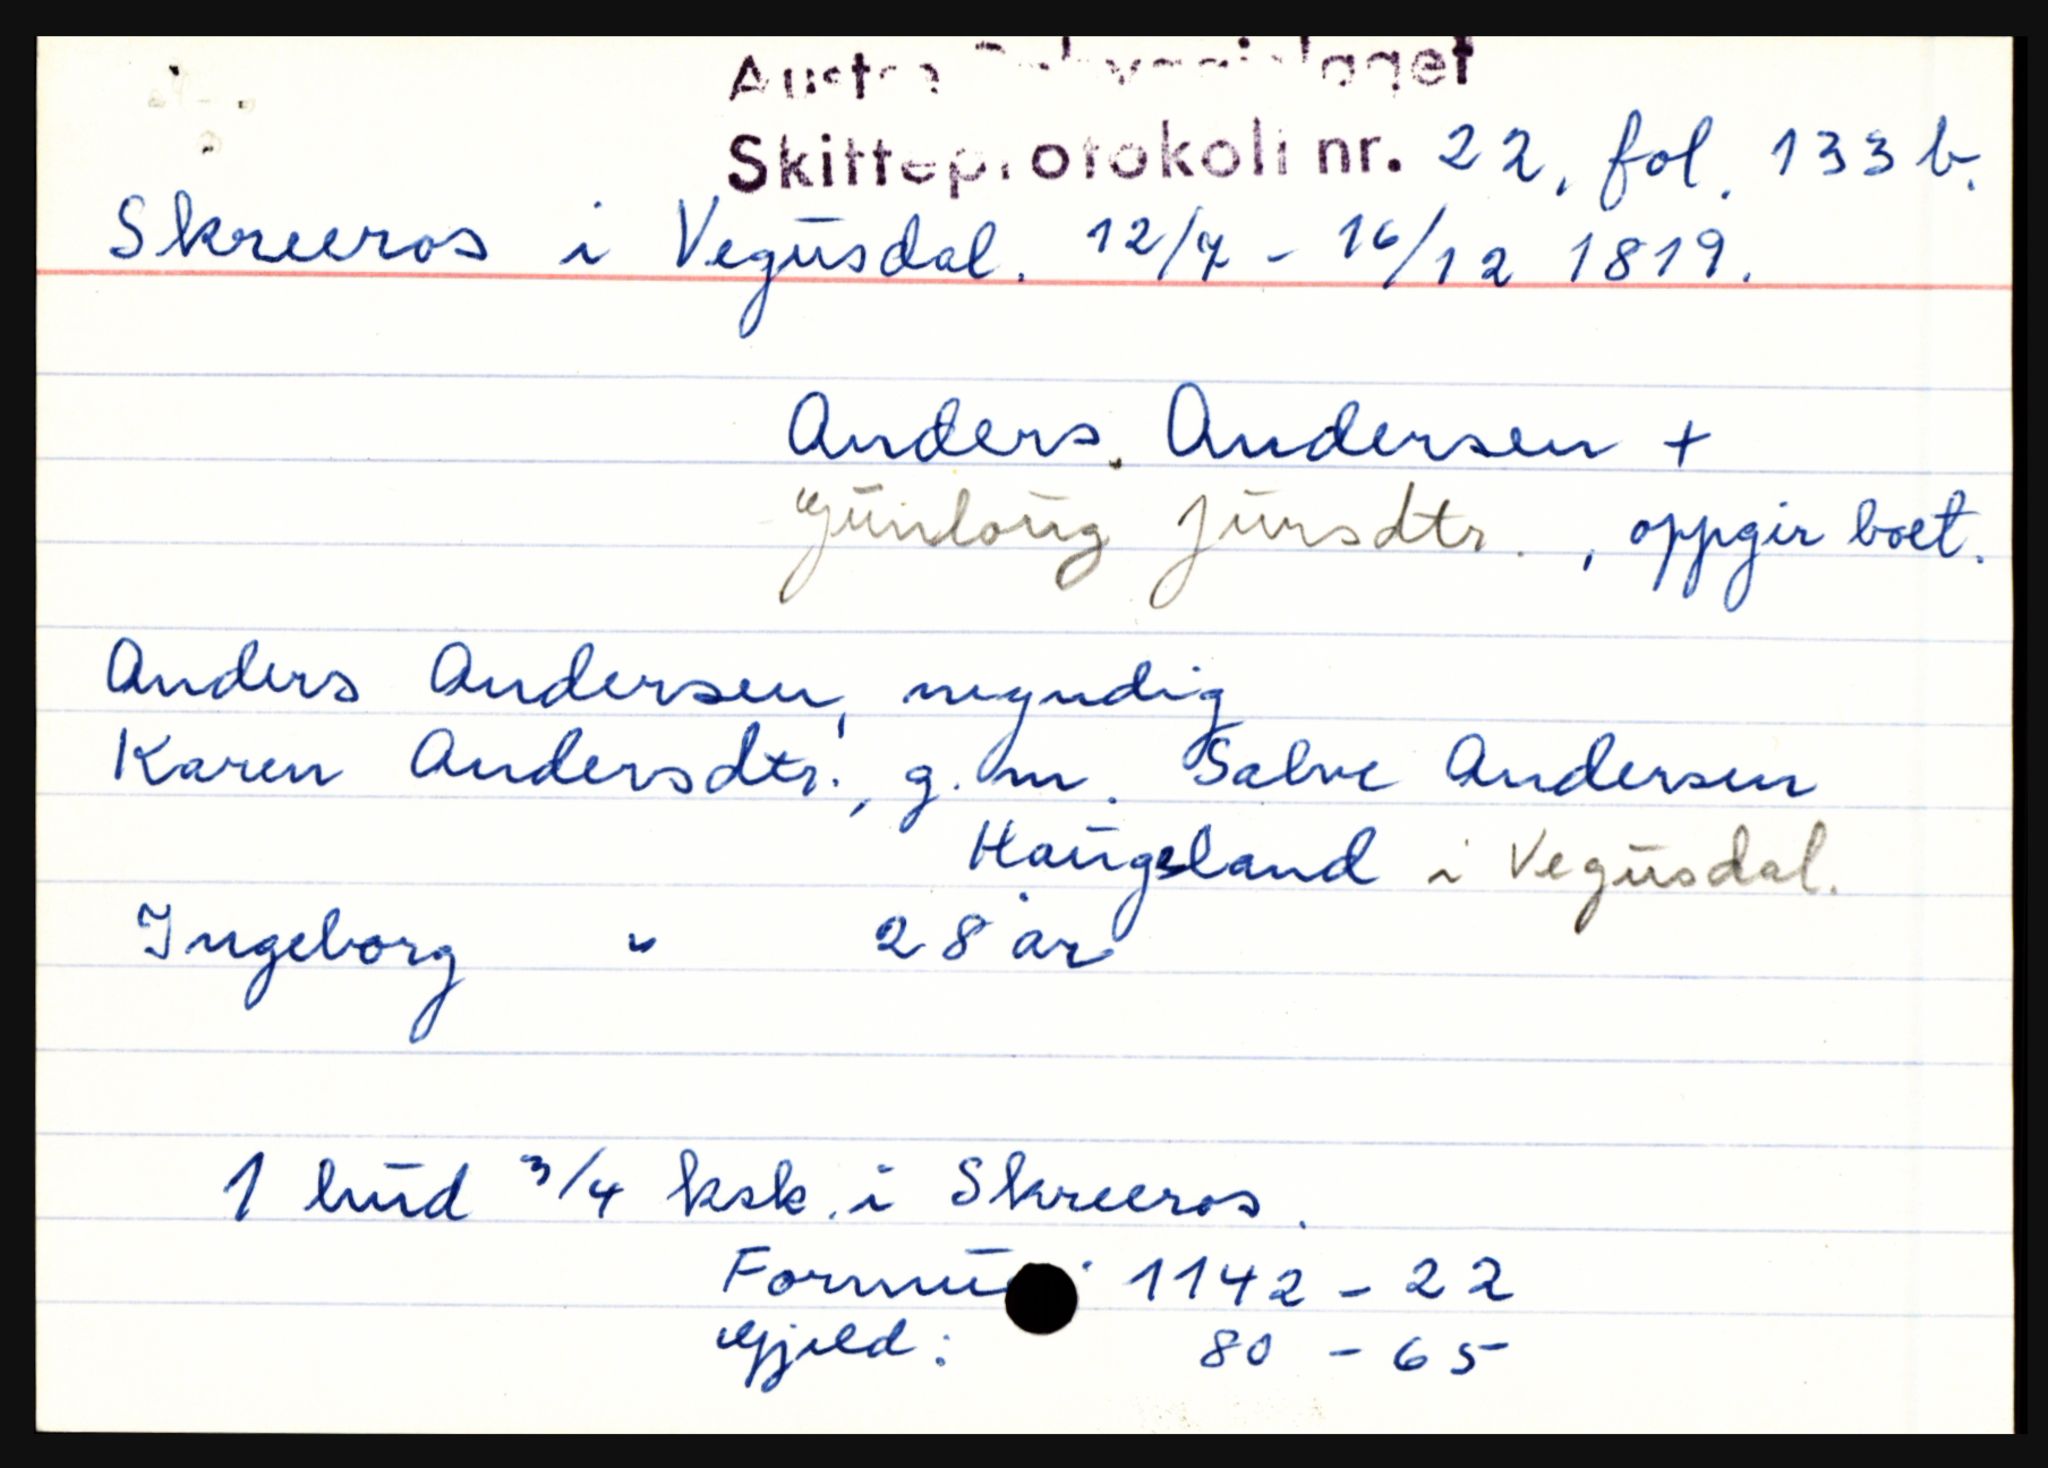 Skifteprotokoll nr. 22, fol. 133 b.
Skreeros i Vegusdal. 12/7 - 16/12 1819.
Anders Andersen +
Gunloug Jursdtr., oppgir boet.
Anders Andersen, myndig
Karen Andersdtr., g. m. Salve Andersen
Haugsland i Vegusdal.
Ingeborg " 28 år
1 hud 3/4 ksk. i Skreeros.
Formu 1142 - 22
Gjeld: 80 - 65